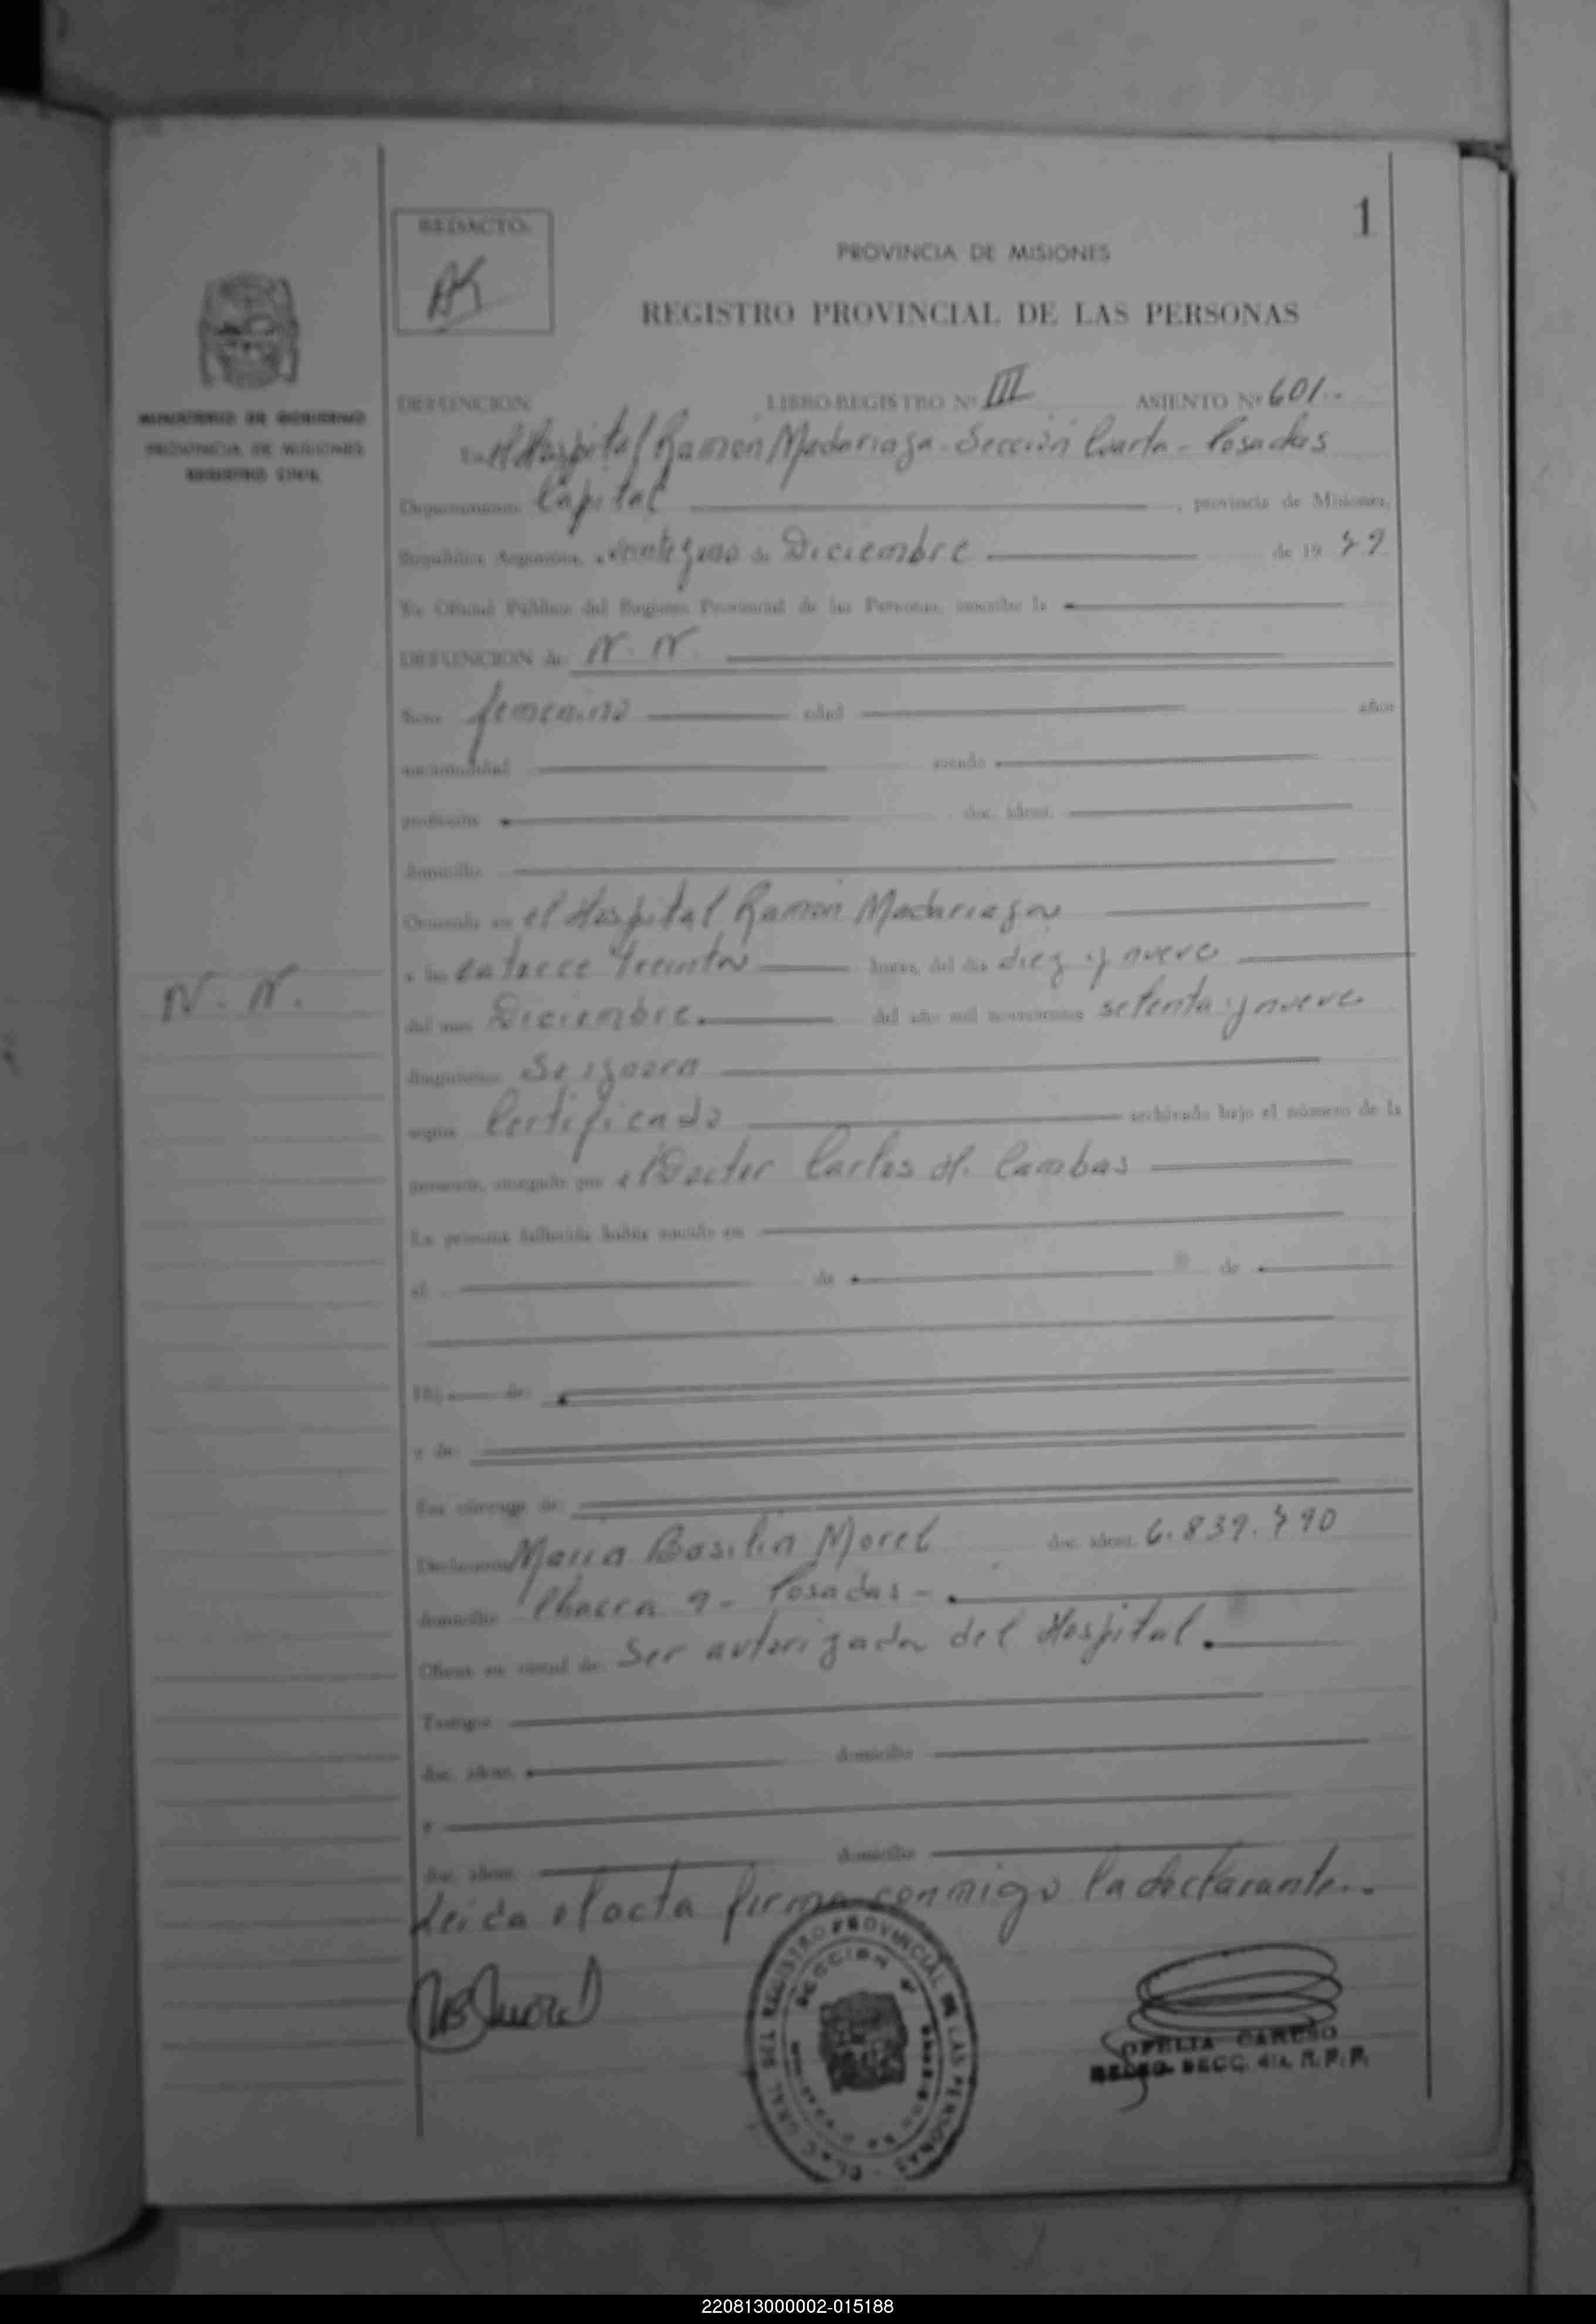 1
REDACTO:
PROVINCIA DE MISIONES
REGISTRO PROVINCIAL DE LAS PERSONAS
MINISTERIO DE GOBIERNO
PROVINCIA DE MISIONES
REGISTRO CIVIL
DEFUNCION LIBRO-REGISTRO Nº III ASIENTO Nº 601.-
En el Hospital Ramón Madariaga - Sección Cuarta - Posadas
Departamento Capital , provincia de Misiones,
República Argentina, a veinte y uno de Diciembre de 19 79
Yo Oficial Público del Registro Provincial de las Personas, inscribo la
DEFUNCION de N. N.
Sexo femenino edad años
nacionalidad estado
profesión doc. ident.
domicilio
Ocurrida en el Hospital Ramón Madariaga
a las catorce treinta horas, del día diez y nueve
N. N.
del mes Diciembre. del año mil novecientos setenta y nueve
diagnóstico Se ignora
según Certificado archivado bajo el número de la
presente, otorgado por el Doctor Carlos H. Cambas
La persona fallecida había nacido en
el de de
Hij de
y de
En cónyuge de
Declarante María Basilia Morel doc. ident. 6.839.790
domicilio 9 - Posadas -
Obran en virtud de Ser autorizada del Hospital.
Testigos
doc. ident. domicilio
y
doc. ident. domicilio
Leída el acta firma conmigo la declarante..
REGISTRO PROVINCIAL DE LAS PERSONAS
SECCION 4ª
OFELIA CARUSO
SECC. 4ta. R.P.P.
220813000002-015188